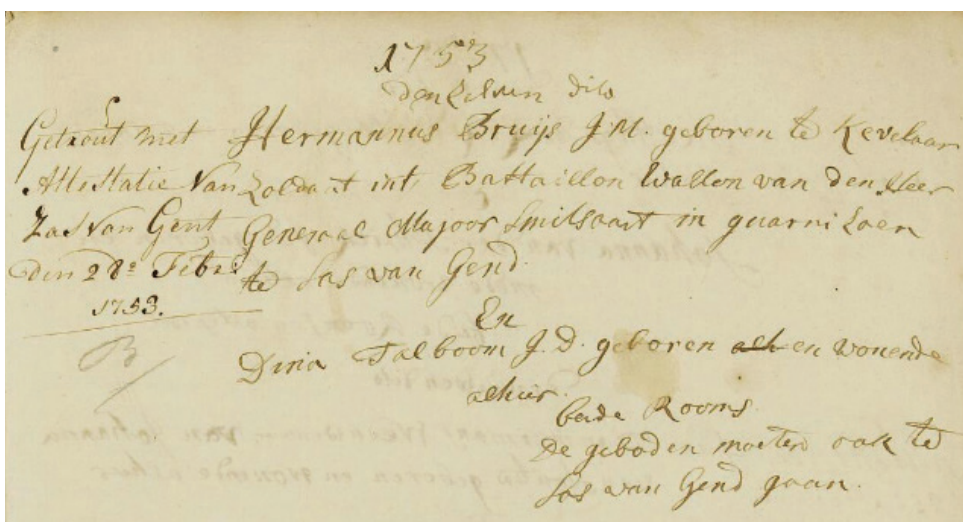 1753
den Zelven dito
Getrout met
Attestatie Van
Zas van Gent
den 28e Febr:
1753.
Hermannus Bruijs J.M. geboren te Kevelaar
Zoldaat int Battaillon Wallon van den Heer
Generaal Majoor Smilsaart in guarniZoen
te Sas van Gend
En
Dina Talboom J.D. geboren alh en wonende
alhier.
beide Rooms.
De geboden moeten ook te
Sas van Gend gaan.